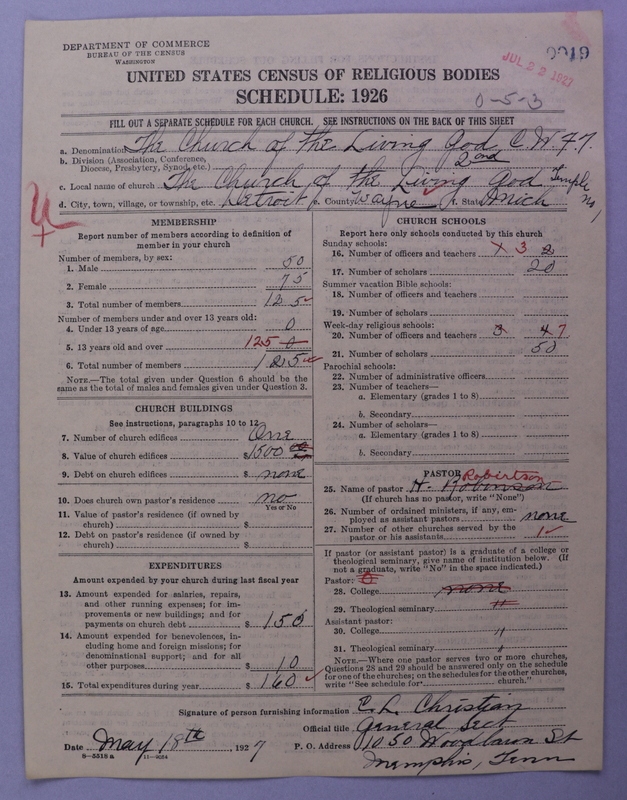 DEPARTMENT OF COMMERCE
BUREAU OF THE CENSUS
WASHINGTON
JUL 22 1927
UNITED STATES CENSUS OF RELIGIOUS BODIES
SCHEDULE: 1926
0-5-3
FILL OUT A SEPARATE SCHEDULE FOR EACH CHURCH. SEE INSTRUCTIONS ON THE BACK OF THIS SHEET
a. Denomination The Church of the Living God C. W. F. T.
b. Division (Association, Conference,
Diocese, Presbytery, Synod, etc.) 2nd
c. Local name of church The Church of the Living God Temple No 1
d. City, town, village, or township, etc. Detroit e. County Wayne f. State Mich
U
MEMBERSHIP
Report number of members according to definition of
member in your church
Number of members, by sex:
1. Male 50
2. Female 75
3. Total number of members 125
Number of members under and over 13 years old:
4. Under 13 years of age 0
5. 13 years old and over 125 0
6. Total number of members 125
NOTE.—The total given under Question 6 should be the
same as the total of males and females given under Question 3.
CHURCH BUILDINGS
See instructions, paragraphs 10 to 12
7. Number of church edifices One
8. Value of church edifices $1500
9. Debt on church edifices $ none
10. Does church own pastor's residence no
Yes or No
11. Value of pastor's residence (if owned by
church) $
12. Debt on pastor's residence (if owned by
church) $
EXPENDITURES
Amount expended by your church during last fiscal year
13. Amount expended for salaries, repairs,
and other running expenses; for im-
provements or new buildings; and for
payments on church debt $ 150
14. Amount expended for benevolences, in-
cluding home and foreign missions; for
denominational support; and for all
other purposes $ 10
15. Total expenditures during year $ 160
CHURCH SCHOOLS
Report here only schools conducted by this church
Sunday schools:
16. Number of officers and teachers 3 2
17. Number of scholars 20
Summer vacation Bible schools:
18. Number of officers and teachers
19. Number of scholars
Week-day religious schools:
20. Number of officers and teachers 3 47
21. Number of scholars 50
Parochial schools:
22. Number of administrative officers
23. Number of teachers—
a. Elementary (grades 1 to 8)
b. Secondary
24. Number of scholars—
a. Elementary (grades 1 to 8)
b. Secondary
PASTOR
Robertson
25. Name of pastor H. Robinson
(If church has no pastor, write "None")
26. Number of ordained ministers, if any, em-
ployed as assistant pastors none
27. Number of other churches served by the
pastor or his assistants 1
If pastor (or assistant pastor) is a graduate of a college or
theological seminary, give name of institution below. (If
not a graduate, write "No" in the space indicated.)
Pastor:
28. College none
29. Theological seminary "
Assistant pastor:
30. College "
31. Theological seminary "
NOTE.—Where one pastor serves two or more churches,
Questions 28 and 29 should be answered only on the schedule
for one of the churches; on the schedules for the other churches,
write "See schedule for church."
Signature of person furnishing information C. L. Christian
Official title General Sect
Date May 18th, 1927 P. O. Address 1050 Woodlawn St
8—5518 a 11—9084
Memphis, Tenn